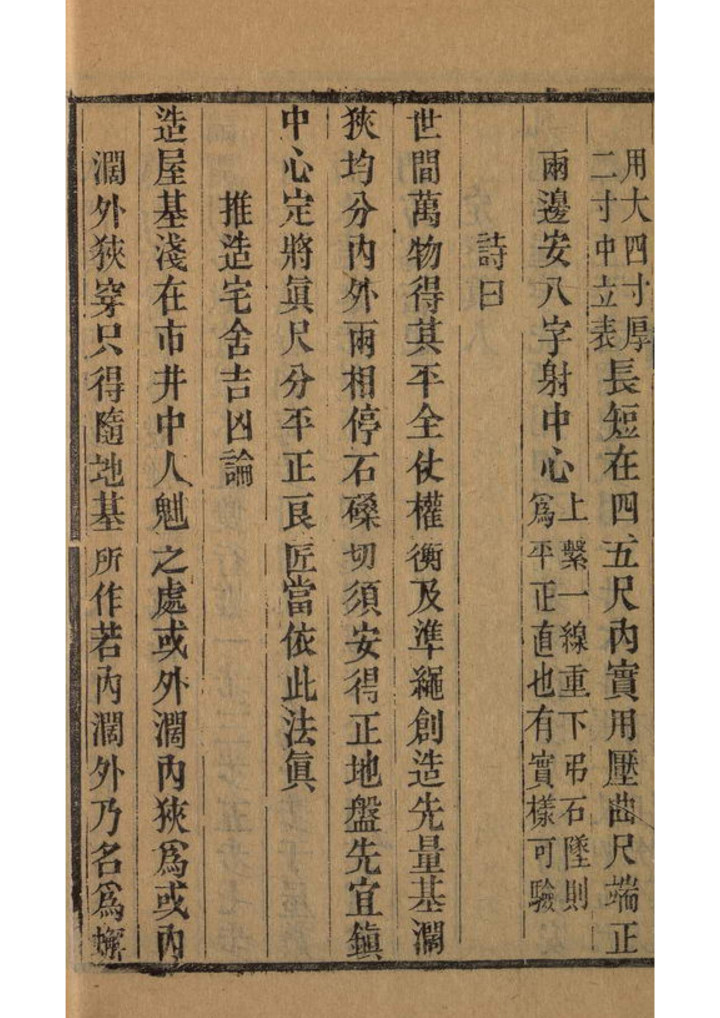 用大四寸厚二寸中立表長短在四五尺內實用壓曲尺端正
兩邊安八字射中心上繫一線重下吊石墜則爲平正直也有實樣可驗
詩曰
世間萬物得其平全仗權衡及準繩創造先量基濶
狹均分內外兩相停石磉切須安得正地盤先宜鎮
中心定將眞尺分平正良匠當依此法眞
推造宅舍吉凶論
造屋基淺在市井中人魁之處或外濶內狹爲或內
濶外狹穿只得隨地基所作若內濶外乃名爲蠏